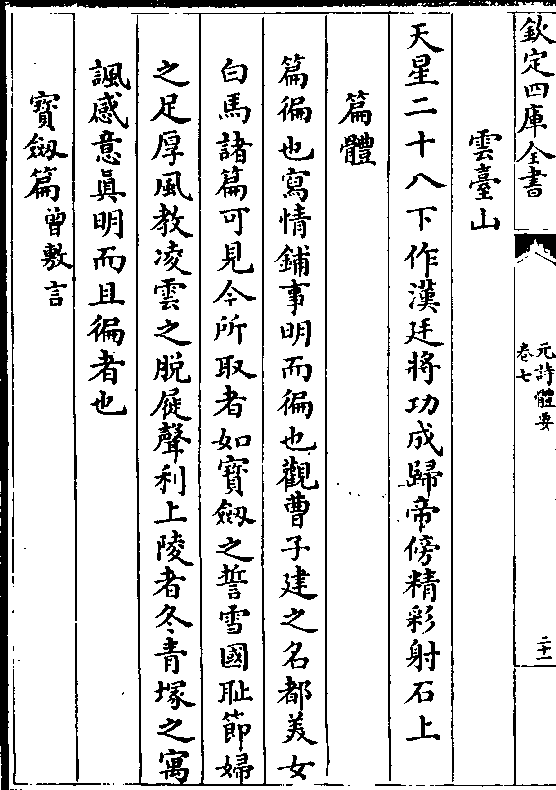 欽定四庫全書
元詩體要
卷七
二十一
雲臺山
天星二十八下作漢廷將功成歸帝傍精彩射石上
篇體
篇徧也寫情鋪事明而徧也觀曹子建之名都美女
白馬諸篇可見今所取者如寳劔之誓雪國耻節婦
之足厚風教凌雲之脫屣聲利上陵者冬青塚之寓
諷感意眞明而且徧者也
寳劔篇曾敷言